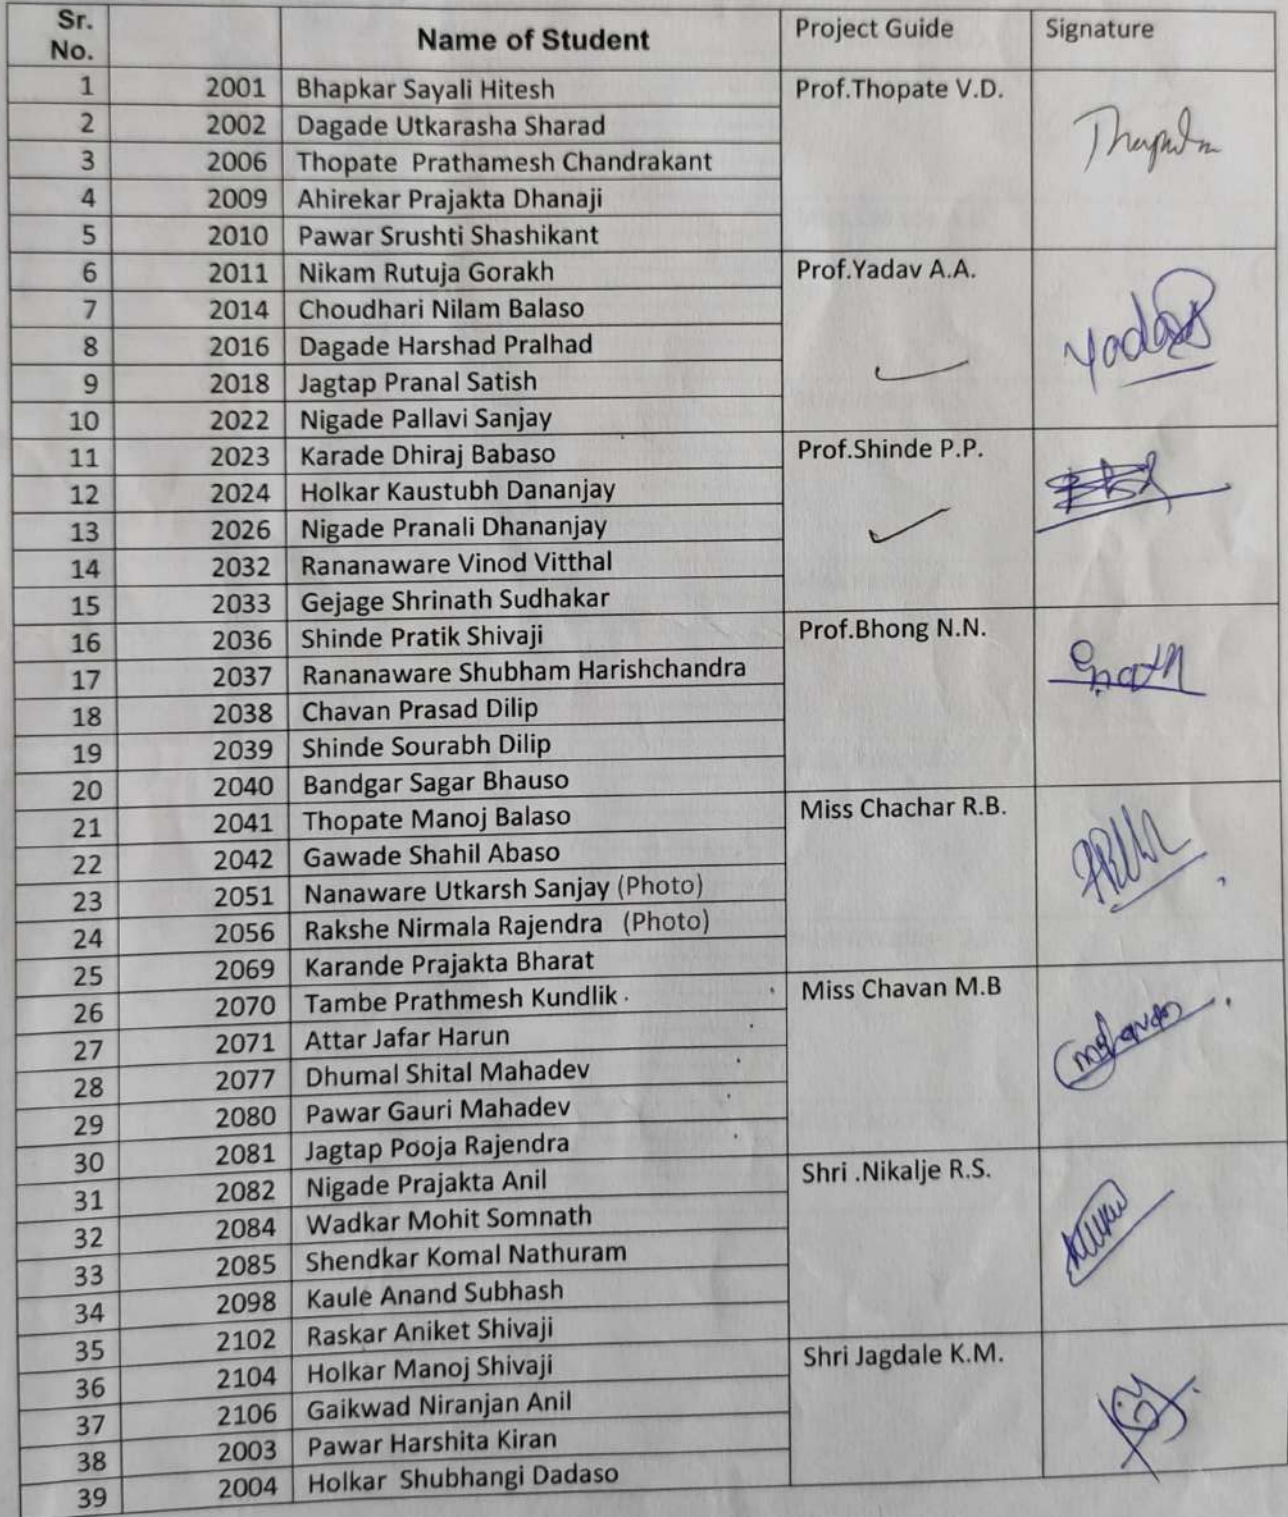 Sr. No. Name of Student Project Guide Signature
1 2001 Bhapkar Sayali Hitesh Prof.Thopate V.D.
2 2002 Dagade Utkarasha Sharad
3 2006 Thopate Prathamesh Chandrakant
4 2009 Ahirekar Prajakta Dhanaji
5 2010 Pawar Srushti Shashikant
6 2011 Nikam Rutuja Gorakh Prof.Yadav A.A.
7 2014 Choudhari Nilam Balaso
8 2016 Dagade Harshad Pralhad
9 2018 Jagtap Pranal Satish
10 2022 Nigade Pallavi Sanjay
11 2023 Karade Dhiraj Babaso Prof.Shinde P.P.
12 2024 Holkar Kaustubh Dananjay
13 2026 Nigade Pranali Dhananjay
14 2032 Rananaware Vinod Vitthal
15 2033 Gejage Shrinath Sudhakar
16 2036 Shinde Pratik Shivaji Prof.Bhong N.N.
17 2037 Rananaware Shubham Harishchandra
18 2038 Chavan Prasad Dilip
19 2039 Shinde Sourabh Dilip
20 2040 Bandgar Sagar Bhauso
21 2041 Thopate Manoj Balaso Miss Chachar R.B.
22 2042 Gawade Shahil Abaso
23 2051 Nanaware Utkarsh Sanjay (Photo)
24 2056 Rakshe Nirmala Rajendra (Photo)
25 2069 Karande Prajakta Bharat
26 2070 Tambe Prathmesh Kundlik Miss Chavan M.B
27 2071 Attar Jafar Harun
28 2077 Dhumal Shital Mahadev
29 2080 Pawar Gauri Mahadev
30 2081 Jagtap Pooja Rajendra
31 2082 Nigade Prajakta Anil Shri .Nikalje R.S.
32 2084 Wadkar Mohit Somnath
33 2085 Shendkar Komal Nathuram
34 2098 Kaule Anand Subhash
35 2102 Raskar Aniket Shivaji
36 2104 Holkar Manoj Shivaji Shri Jagdale K.M.
37 2106 Gaikwad Niranjan Anil
38 2003 Pawar Harshita Kiran
39 2004 Holkar Shubhangi Dadaso